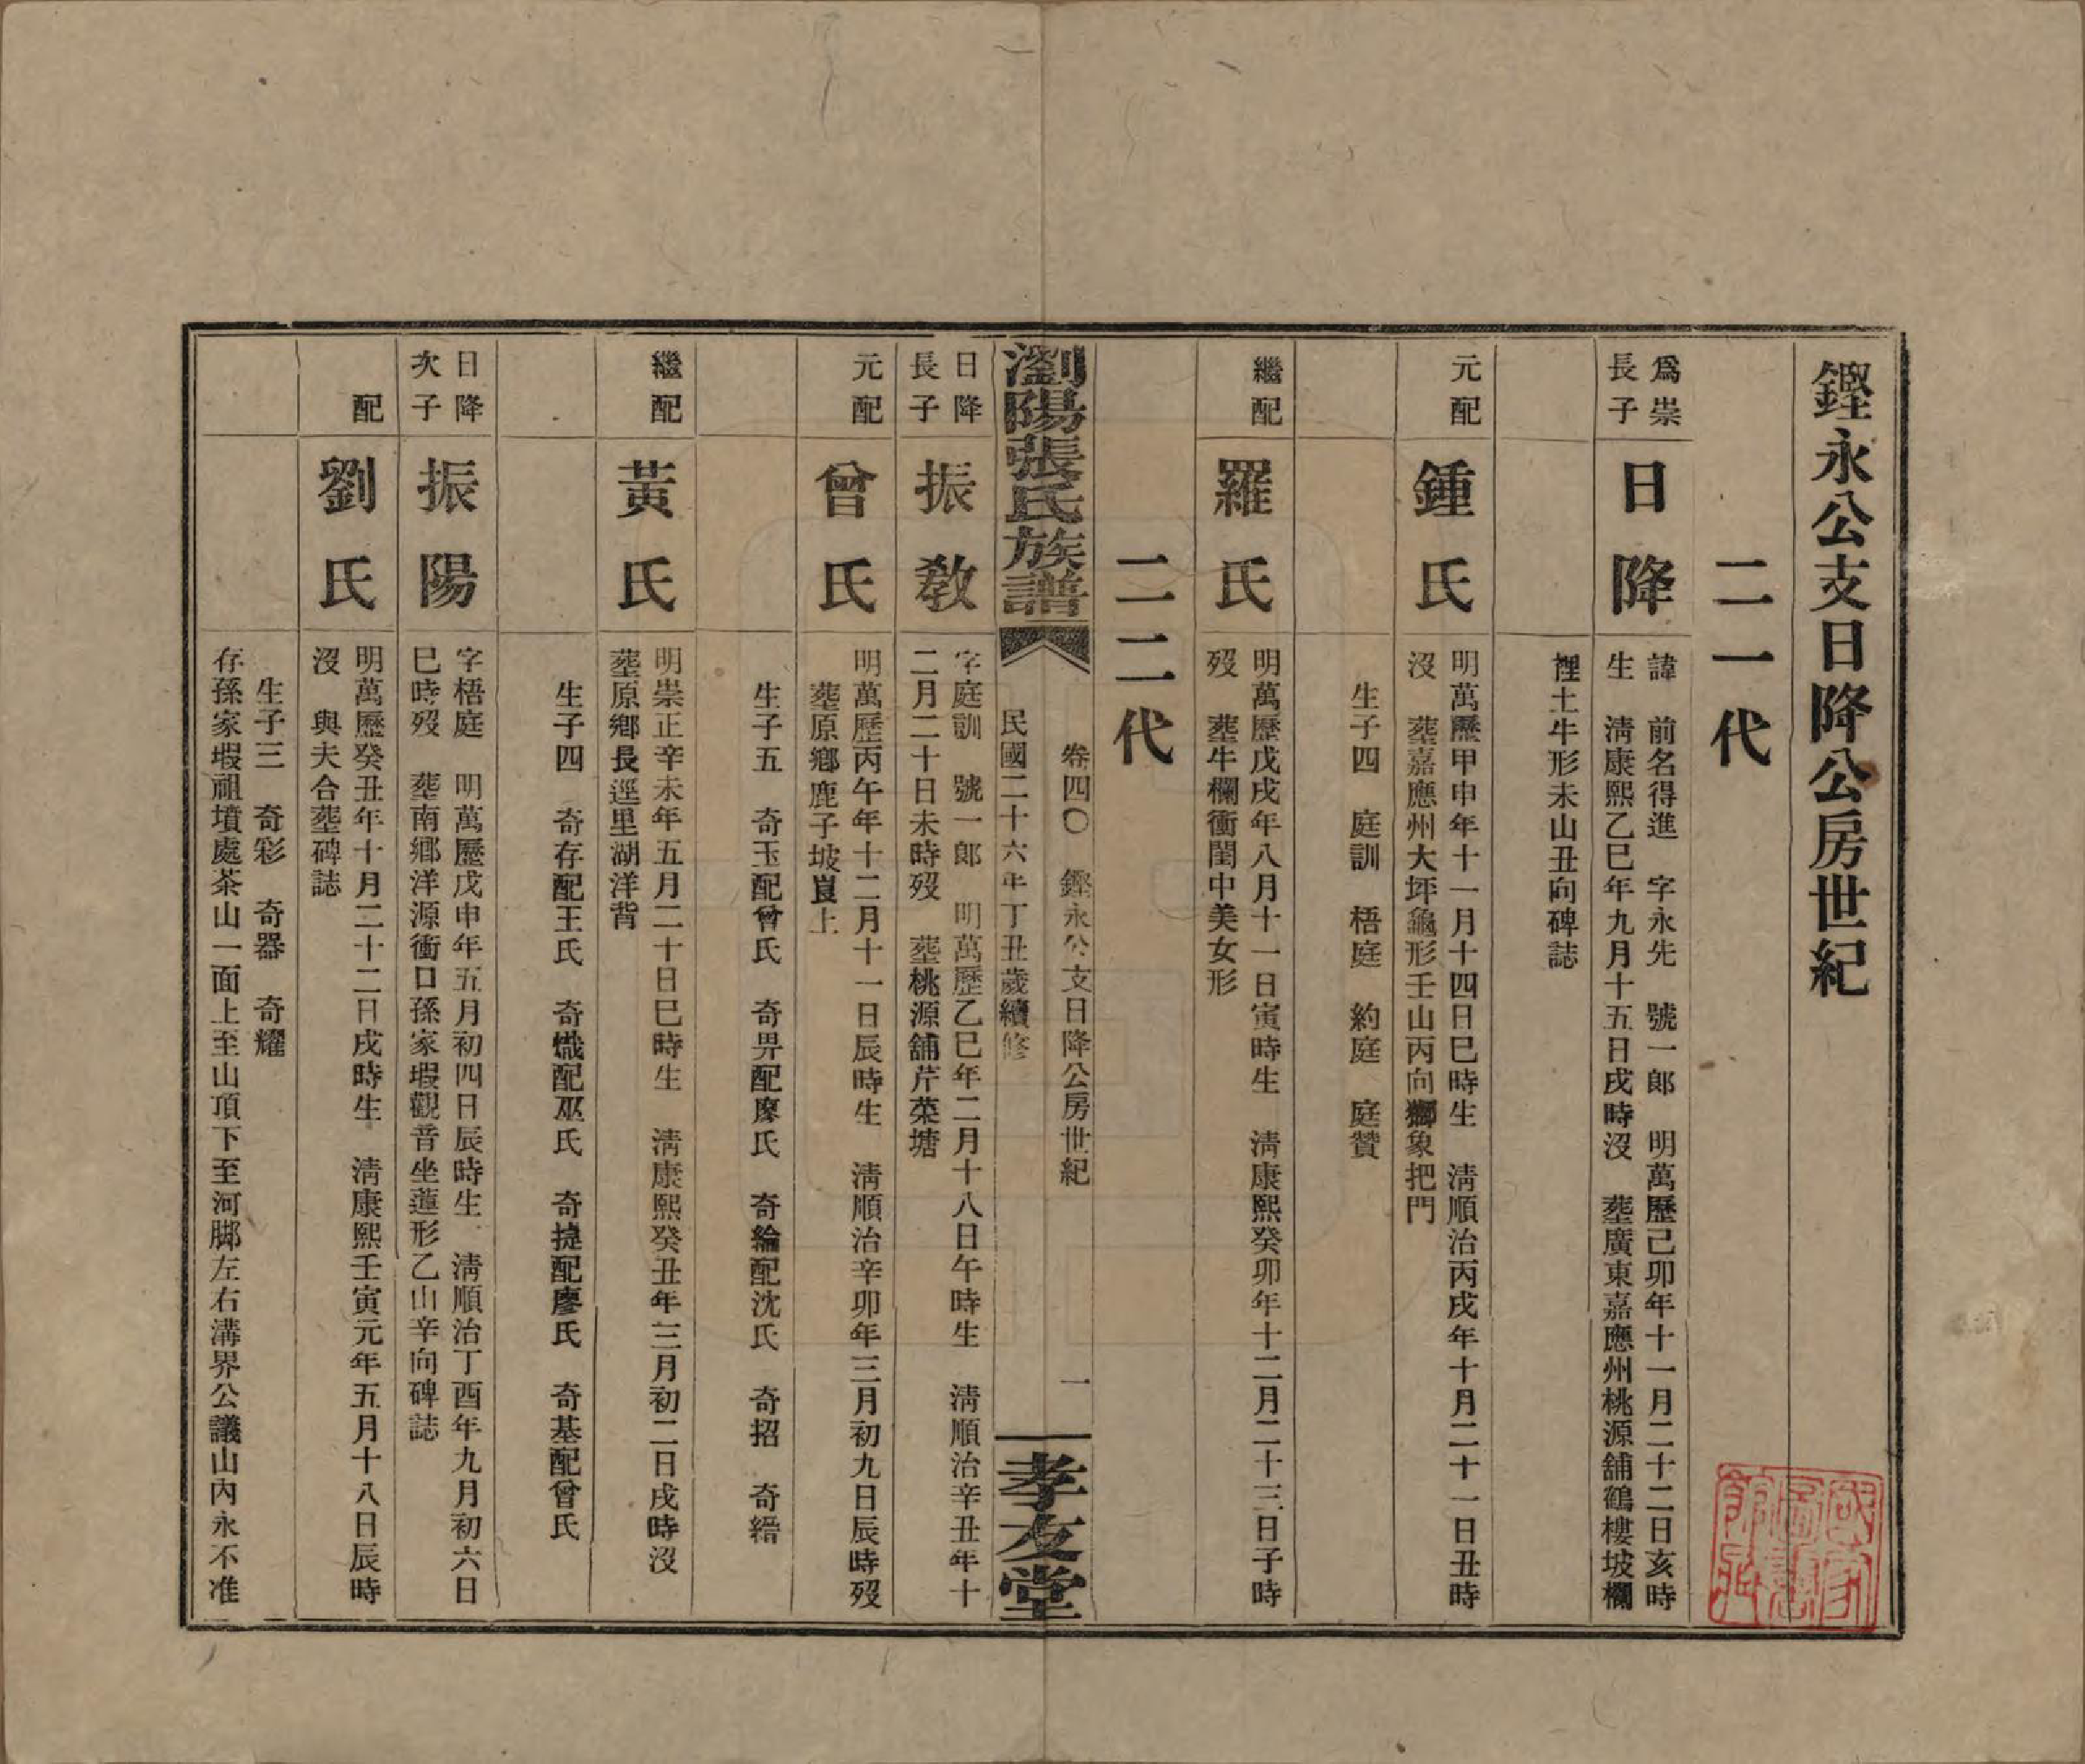 鏗永公支日降公房世紀
二一代
爲崇
長子
日降
諱　前名得進　字永先　號一郞　明萬歷己卯年十一月二十二日亥時
生　淸康熙乙巳年九月十五日戌時沒　塟廣東嘉應州桃源舖鶴樓坡欄
裡土牛形未山丑向碑誌
元配
鍾氏
明萬歷甲申年十一月十四日巳時生　淸順治丙戌年十月二十一日丑時
沒　塟嘉應州大坪龜形壬山丙向獅象把門
生子四　庭訓　梧庭　約庭　庭贊
繼配
羅氏
明萬歷戊戌年八月十一日寅時生　淸康熙癸卯年十二月二十三日子時
歿　塟牛欄衝閨中美女形
二二代
瀏陽張氏族譜
卷四〇　鏗永公支日降公房世紀　一
民國二十六年丁丑歲續修
孝友堂
日降
長子
振敎
字庭訓　號一郎　明萬歷乙巳年二月十八日午時生　淸順治辛丑年十
二月二十日未時歿　塟桃源舖芹菜塘
元配
曾氏
明萬歷丙午年十二月十一日辰時生　淸順治辛卯年三月初九日辰時歿
塟原鄉鹿子坡崀上
生子五　奇玉配曾氏　奇畀配廖氏　奇綸配沈氏　奇招　奇縉
繼配
黃氏
明崇正辛未年五月二十日巳時生　淸康熙癸丑年三月初二日戌時沒
塟原鄉長逕里湖洋背
生子四　奇存配王氏　奇熾配巫氏　奇㨗配廖氏　奇基配曾氏
日降
次子
振陽
字梧庭　明萬歷戊申年五月初四日辰時生　淸順治丁酉年九月初六日
巳時歿　塟南鄉洋源衝口孫家塅觀音坐蓮形乙山辛向碑誌
配
劉氏
明萬歷癸丑年十月二十二日戌時生　淸康熙壬寅元年五月十八日辰時
沒　與夫合塟碑誌
生子三　奇彩　奇器　奇耀
存孫家塅祖墳處茶山一面上至山頂下至河脚左右溝界公議山內永不准